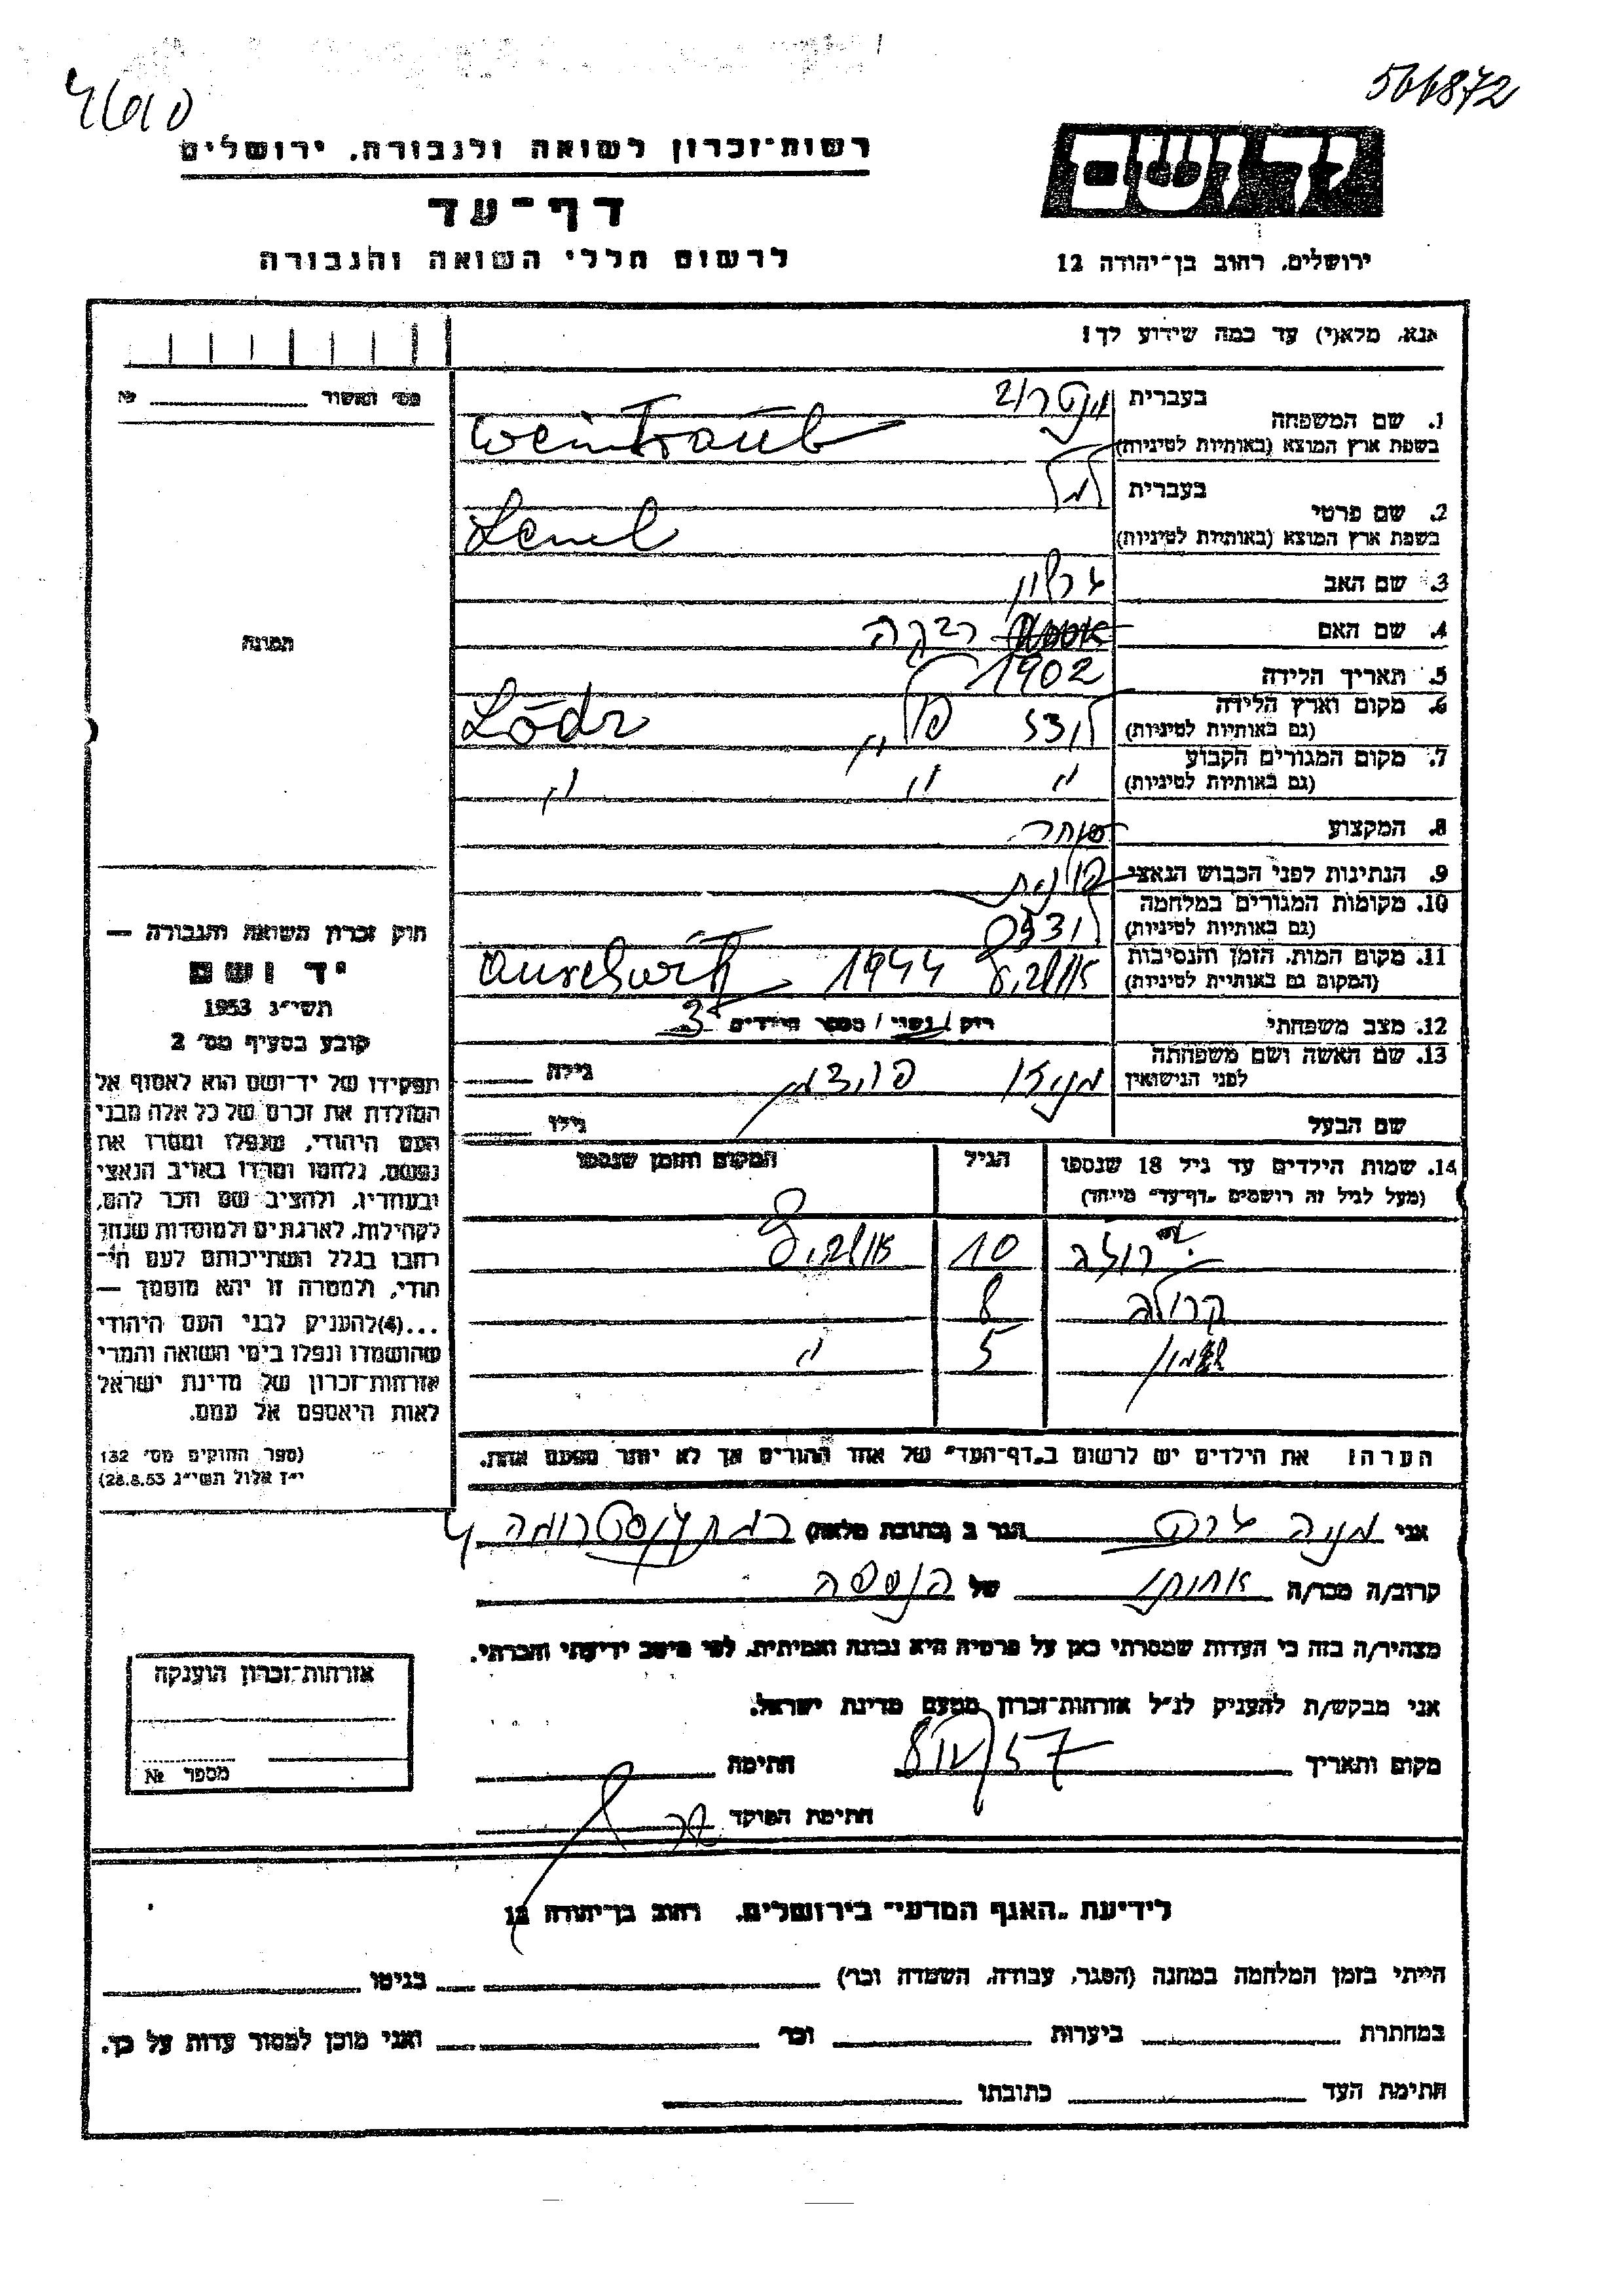 566872
רשות־זכרון לשואה ולגבורה, ירושלים
דף־עד
לרשום חללי השואה והגבורה
יד ושם
ירושלים, רחוב בן־יהודה 12
אנא, מלא(י) עד כמה שידוע לך!
מס' האשור №
1. שם המשפחה
בעברית
בשפת ארץ המוצא (באותיות לטיניות)
Weintraub
2. שם פרטי
בעברית
למל
בשפת ארץ המוצא (באותיות לטיניות)
Lemel
3. שם האב
4. שם האם רבקה
5. תאריך הלידה 1902
6. מקום וארץ הלידה
(גם באותיות לטיניות)
לודז פולין Lódz
7. מקום המגורים הקבוע
(גם באותיות לטיניות)
" " "
8. המקצוע סוחר
9. הנתינות לפני הכבוש הנאצי פולנית
10. מקומות המגורים במלחמה
(גם באותיות לטיניות)
לודז
11. מקום המות, הזמן והנסיבות
(המקום גם באותיות לטיניות)
1944
12. מצב משפחתי רוק / נשוי / מספר הילדים 3
13. שם האשה ושם משפחתה
לפני הנישואין
גילה
שם הבעל גילו
תמונה
חוק זכרון השואה והגבורה —
יד ושם
תשי"ג 1953
קובע בסעיף מס' 2
תפקידו של יד־ושם הוא לאסוף אל
המולדת את זכרם של כל אלה מבני
העם היהודי, שנפלו ומסרו את
נפשם, נלחמו ומרדו באויב הנאצי
ובעוזריו, ולהציב שם וזכר להם,
לקהילות, לארגונים ולמוסדות שנחר־
רחבו בגלל השתייכותם לעם הי־
הודי, ולמטרה זו יהא מוסמך —
...(4) להעניק לבני העם היהודי
שהושמדו ונפלו בימי השואה והמרי
אזרחות־זכרון של מדינת ישראל
לאות היאספם אל עמם.
(ספר החוקים מס' 132
י"ז אלול תשי"ג 28.8.53)
14. שמות הילדים עד גיל 18 שנספו
(מעל לגיל זה רושמים „דף־עד" מיוחד)
הגיל
המקום והזמן שנספו
10
8
שמעון 5 "
הערה: את הילדים יש לרשום ב„דף־העד" של אחד ההורים אך לא יותר מפעם אחת.
אני מניה הגר ב (כתובת מלאה)
קרוב/ה מכר/ה אחותו של הנספה
מצהיר/ה בזה כי העדות שמסרתי כאן על פרטיה היא נכונה ואמיתית, לפי מיטב ידיעתי והכרתי.
אני מבקש/ת להעניק לנ"ל אזרחות־זכרון מטעם מדינת ישראל.
מקום ותאריך חתימה
חתימת הפוקד
אזרחות־זכרון הוענקה
מספר №
לידיעת „האגף המדעי" בירושלים, רחוב בן־יהודה 12
הייתי בזמן המלחמה במחנה (הסגר, עבודה, השמדה וכר') בגיטו
במחתרת ביערות וכר' ואני מוכן למסור עדות על כך.
חתימת העד כתובתו